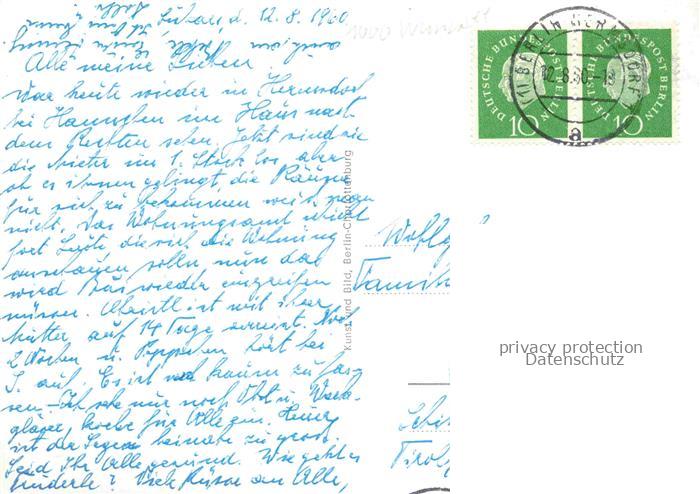 d. 12.8.1960
Alle meine Lieben!
War heute wieder in Hermsdorf
bei Hannchen im Haus nach
dem Rechten sehen. Jetzt sind sie
die Mieter im 1. Stock los aber
ob es ihnen gelingt, die Räume
für sich zu bekommen weiß man
nicht. Das Wohnungsamt schickt
fort Leute die sich die Wohnung
anschauen sollen nun das
wird Bräu wieder eingreifen
müssen. ist mit ihrer
Mutter auf 14 Tage verreist. Noch
2 Wochen u. hört bei
S. auf. Es ist kaum zu fas-
sen. Ich sehe nur noch Obst u. Weck-
gläser, koche für Alle ein. Heuer
ist der Segen beinahe zu groß.
Seid Ihr Alle gesund. Wie geht es
Viele Küsse an Alle,
Kunst und Bild, Berlin-Charlottenburg
DEUTSCHE BUNDESPOST BERLIN
10
DEUTSCHE BUNDESPOST BERLIN
10
(1) BERLIN HERMSDORF 1
12.8.60-18
a
Wolfg
Famil
Tirol
privacy protection
Datenschutz